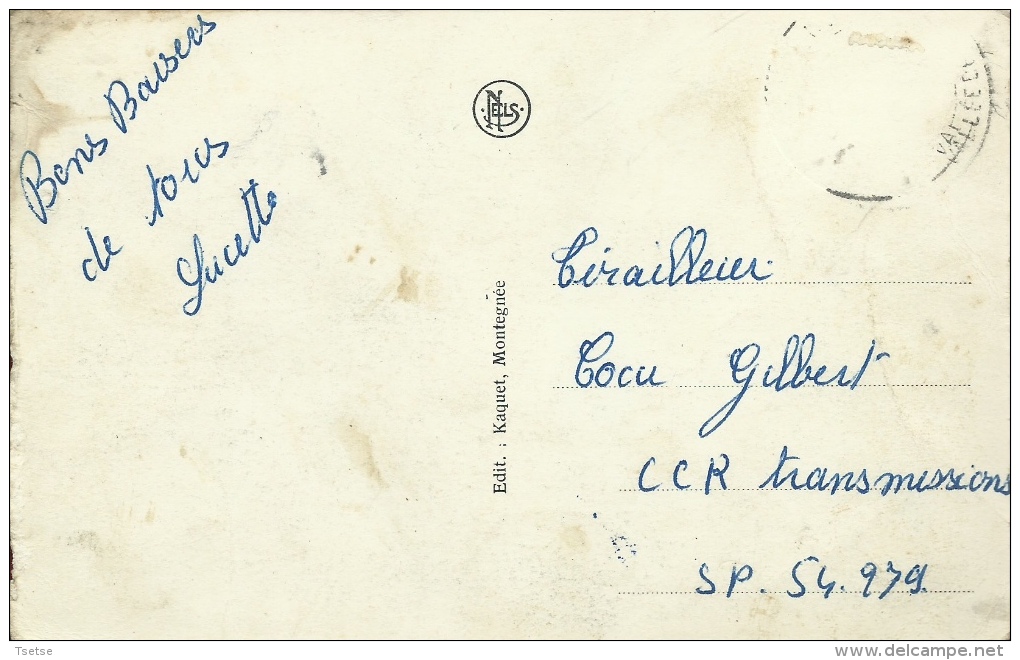 Bons Baisers
de tous
Lucette
NELS
Edit. : Kaquet, Montegnée
Tirailleur
Cocu Gilbert
CCR transmissions
SP. 54.979
Tsetse
delcampe.net